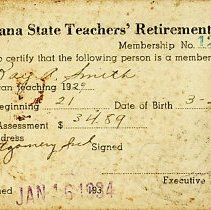 ana State Teachers' Retirement
Membership No. 1
o certify that the following person is a membe
Ray A. Smith
an teaching 192
eginning 21 Date of Birth 3-
Assessment $ 34.89
dress
tgomery Ind
Signed
Executive
ned JAN 16 1934 193